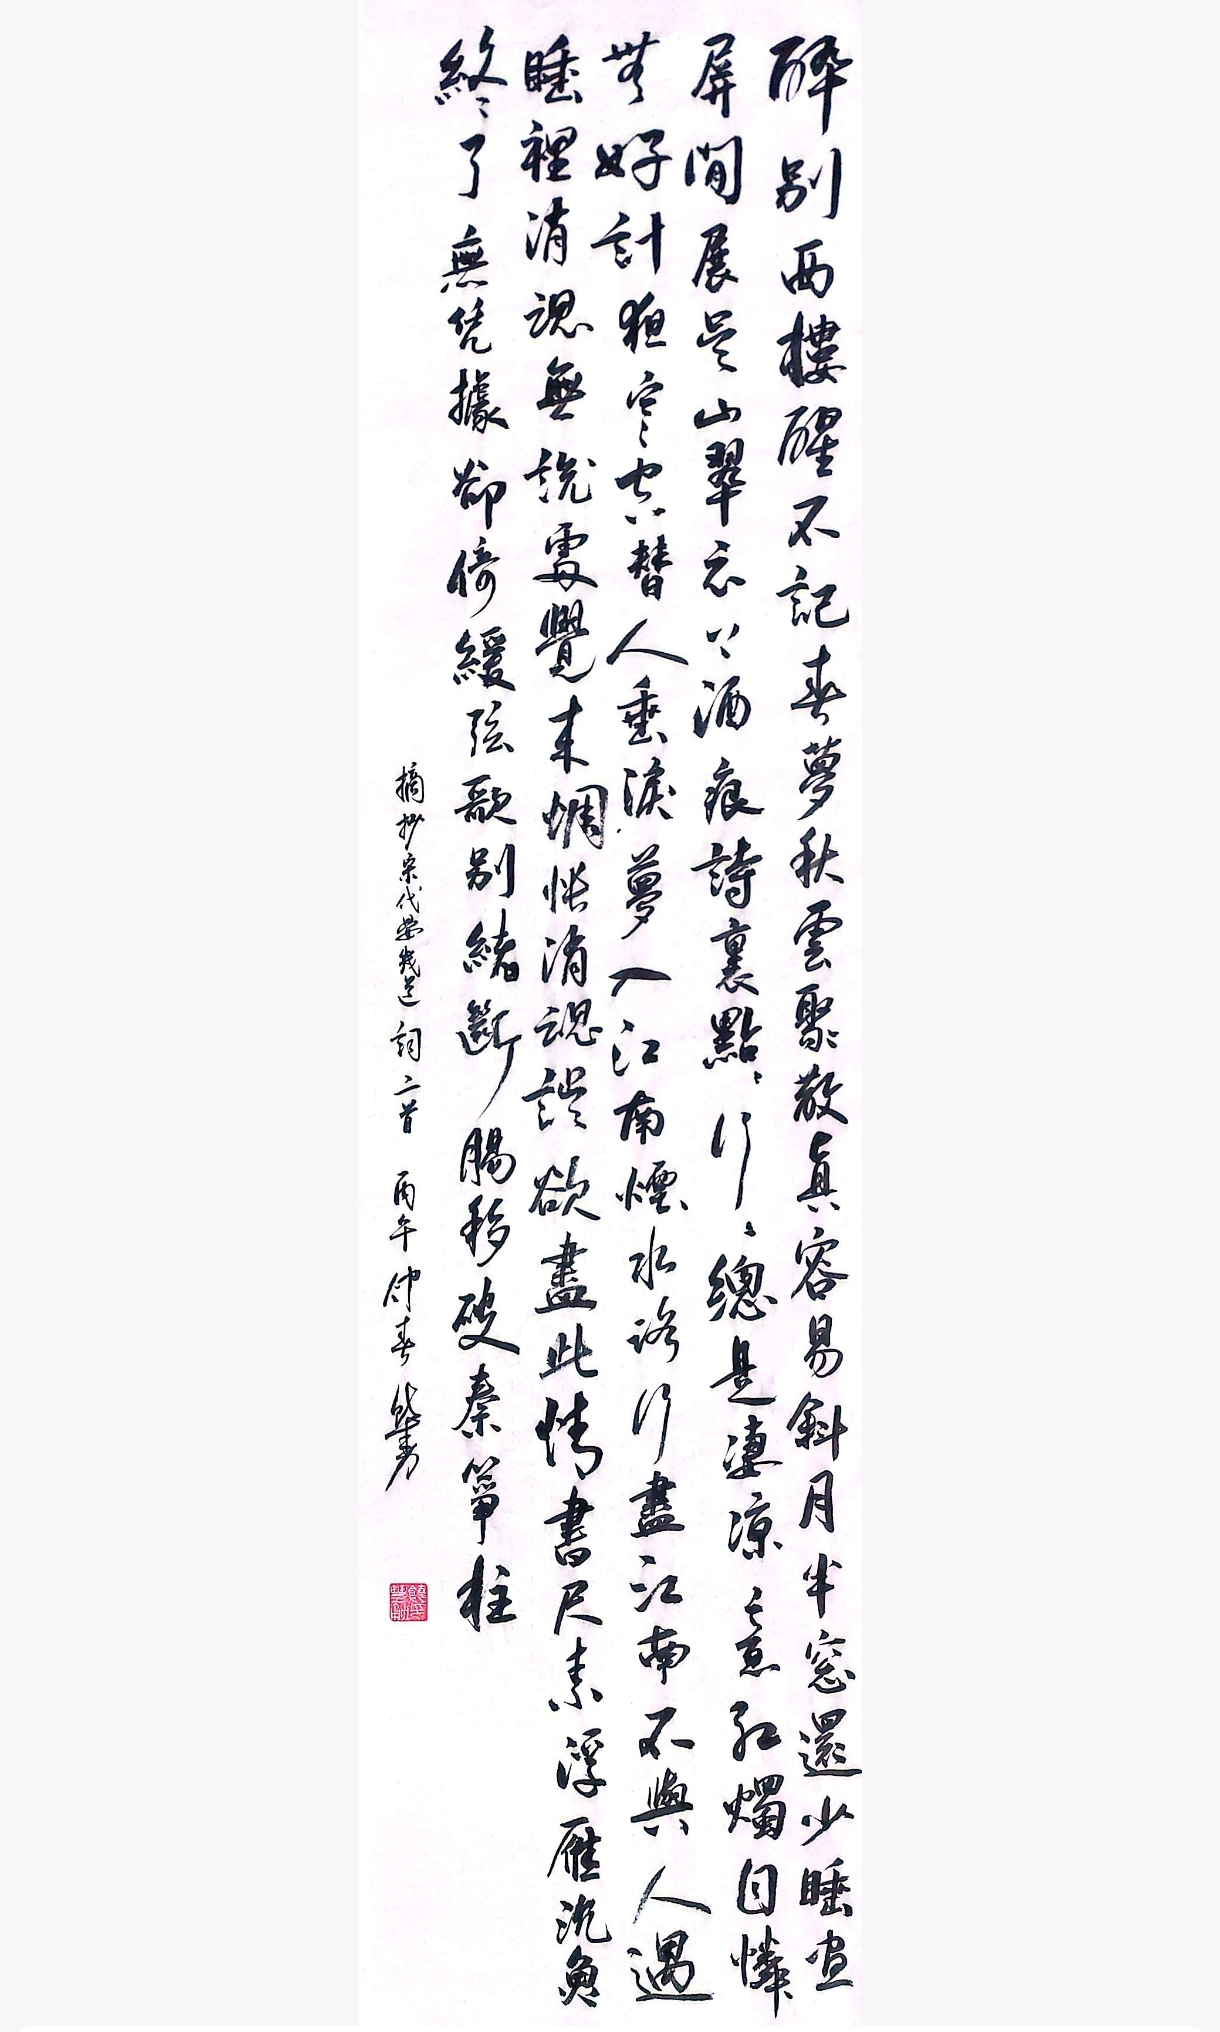 醉别西樓醒不記春夢秋雲聚散真容易斜月半窓還少睡畫
屏閒展吳山翠衣上酒痕詩裏點〻行〻總是淒凉意紅燭自憐
無好計夜寒空替人垂淚夢入江南煙水路行盡江南不與人遇
睡裡消魂無說處覺來惆悵消魂誤欲盡此情書尺素浮雁沉魚
終了無凭據卻倚緩弦歌别緒斷腸移破秦箏柱
摘抄宋代晏幾道詞二首 丙午仲春